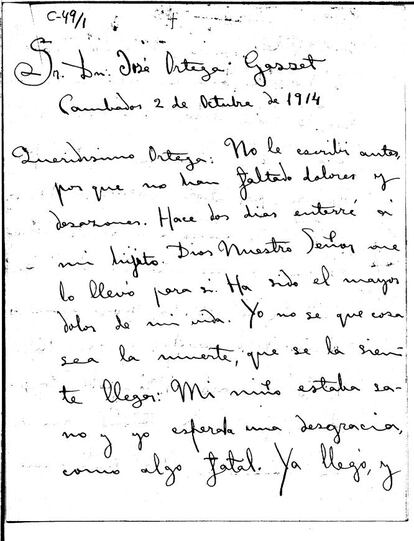 C-49/1
Sr. Dn. José Ortega Gasset
Cambados 2 de Octubre de 1914
Queridisimo Ortega: No le escribi antes,
por que no han faltado dolores y
desazones. Hace dos dias enterré a
mi hijito. Dios Nuestro Señor me
lo llevó para si. Ha sido el mayor
dolor de mi vida. Yo no se que cosa
sea la muerte, que se la sien-
te llegar: Mi niño estaba sa-
no y yo esperaba una desgracia,
como algo fatal. Ya llegó, y